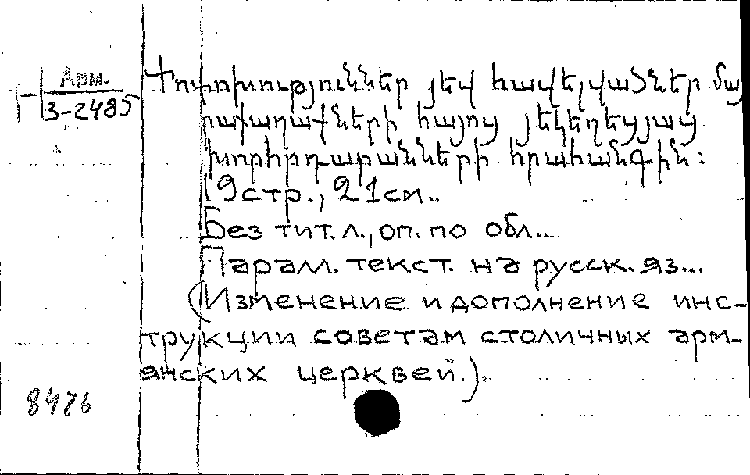 Арм.
3-2485
Փոփոխություններ յեվ հավելվածներ մայ
րաքաղաքների հայոց յեկեղեցյաց
խորհրդարանների հրահանգին:
19стр., 21см..
Без тит. л., оп. по обл...
Парал. текст. на русск. яз...
(Изменение и дополнение инс-
трукции советам столичных арм-
янских церквей.).
8476